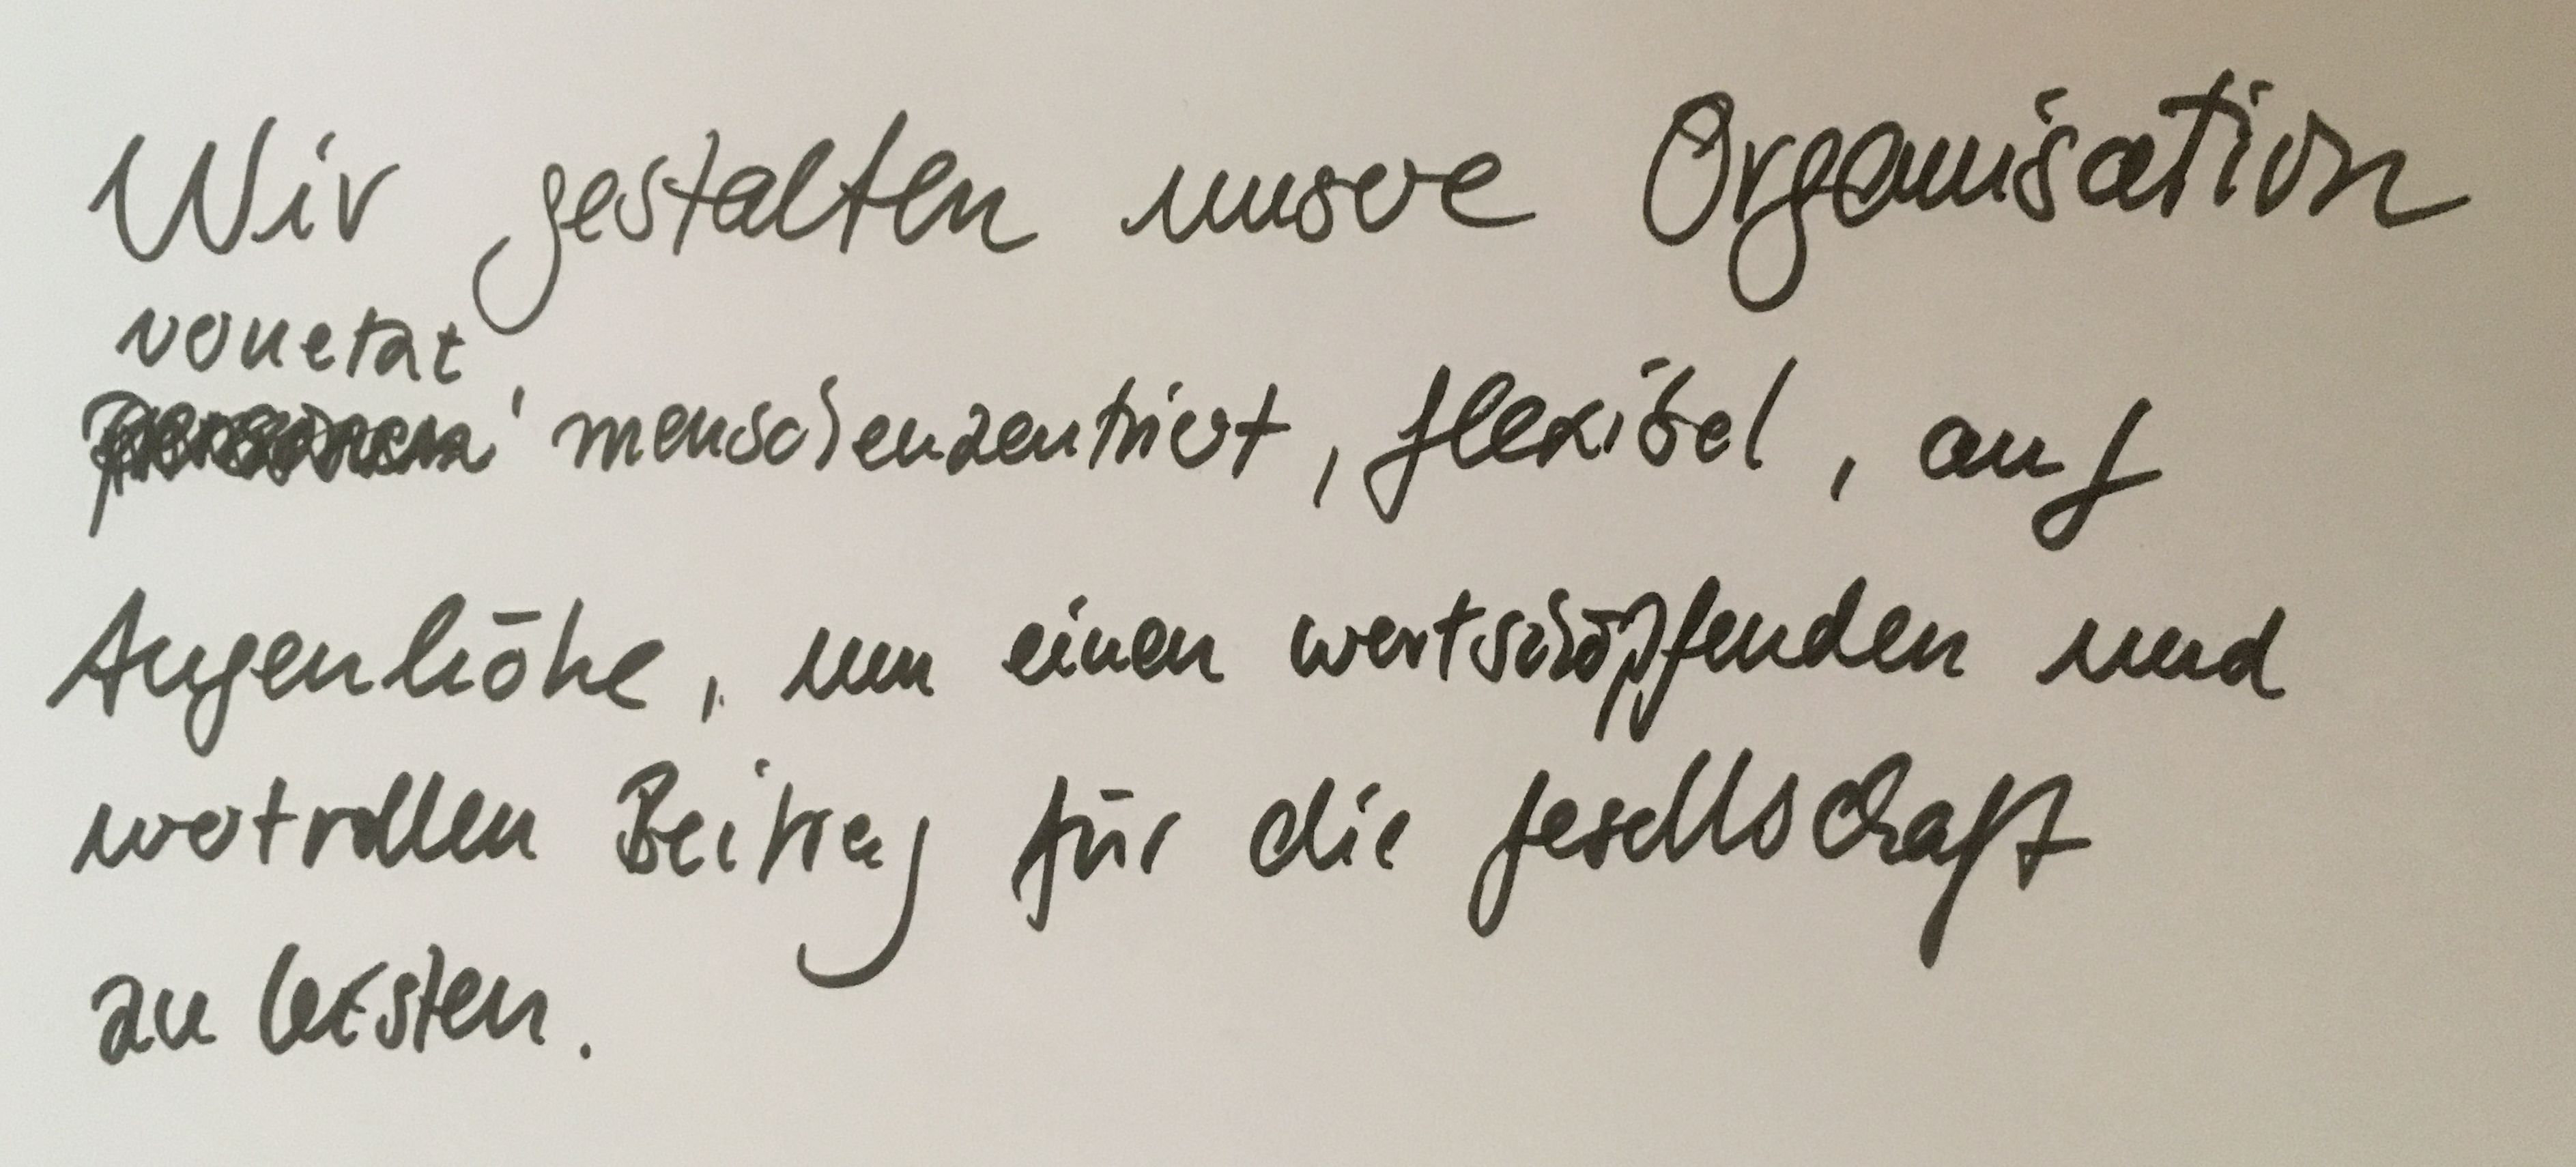 Wir gestalten unsere Organisation
vernetzt
, menschenzentriert, flexibel, auf
Augenhöhe, um einen wertschöpfenden und
wertvollen Beitrag für die Gesellschaft
zu leisten.